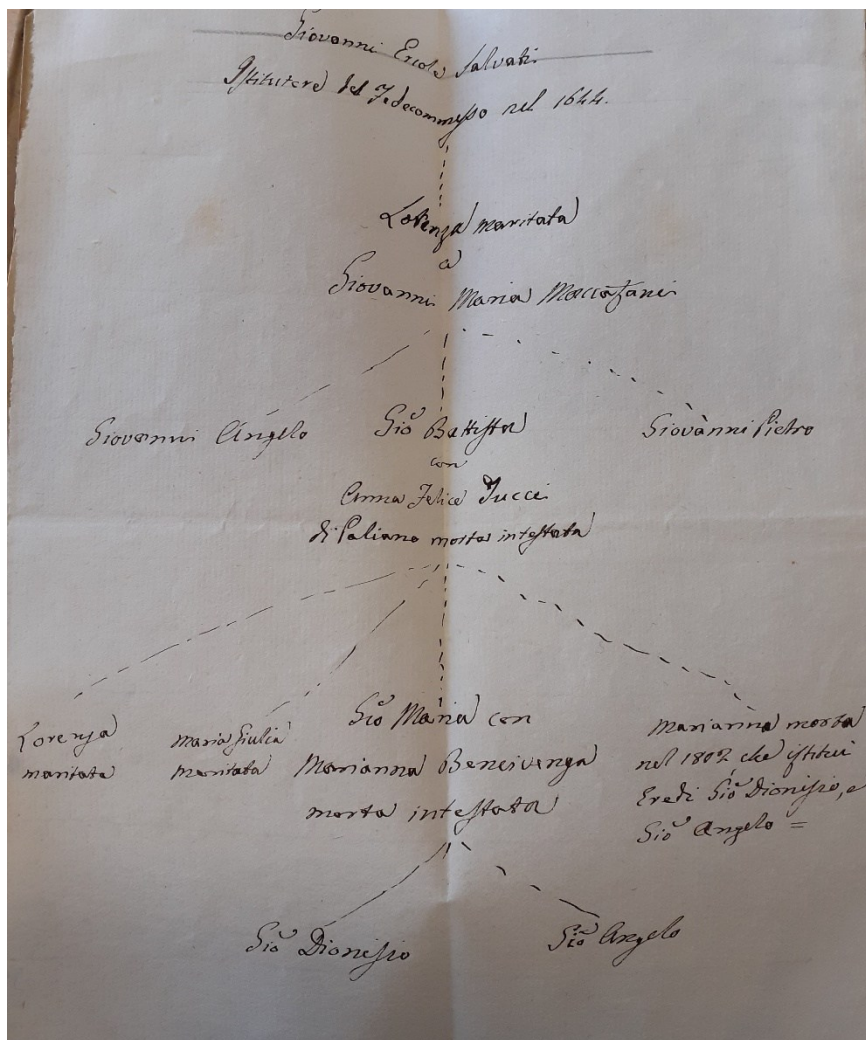 Giovanni Ercole Salvati
Istitutore del Fedecommesso nel 1644.
Lorenza maritata
a
Giovanni Maria
Giovanni Angelo
Gio Battista
Giovanni Pietro
con
Anna Felice Tucci
di Paliano morta intestata
Lorenza
maritata
Maria Giulia
maritata
Gio Maria con
Marianna Bencivenga
morta intestata
Marianna morta
nel 1802 che istitui
Eredi Gio Dionisio, e
Gio Angelo =
Gio Dionisio
Gio Angelo